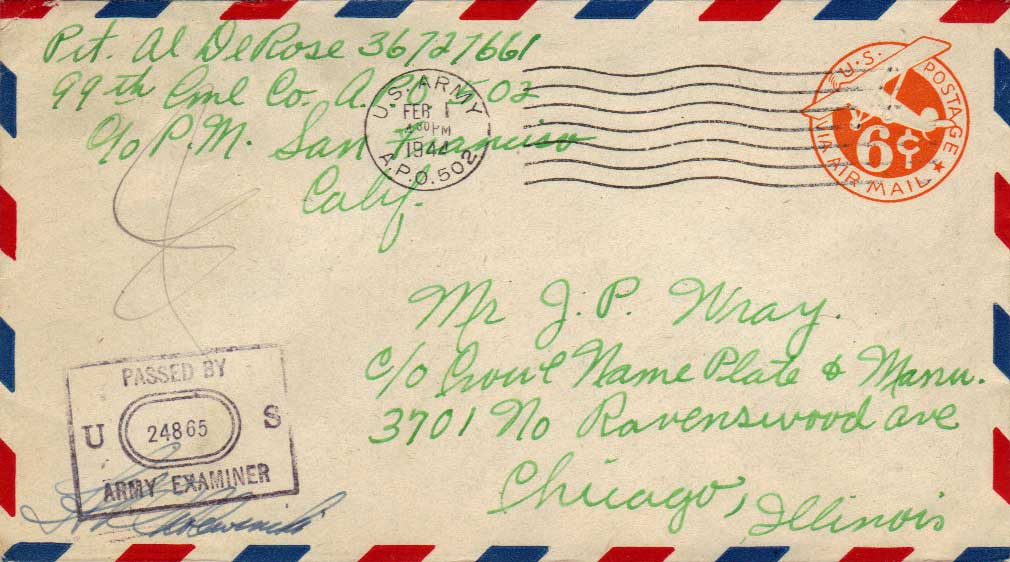 Pvt. Al DeRose 36727661
99th Cml Co. A.P.O. 502
c/o P.M. San Francisco
Calif.
U.S. ARMY
FEB 1
4 30 PM
1944
A.P.O. 502
U.S. POSTAGE
6¢
VIA AIR MAIL
Mr J. P. Wray.
c/o Name Plate & Manu.
3701 No Ravenswood ave
Chicago, Illinois
PASSED BY
U 24865 S
ARMY EXAMINER